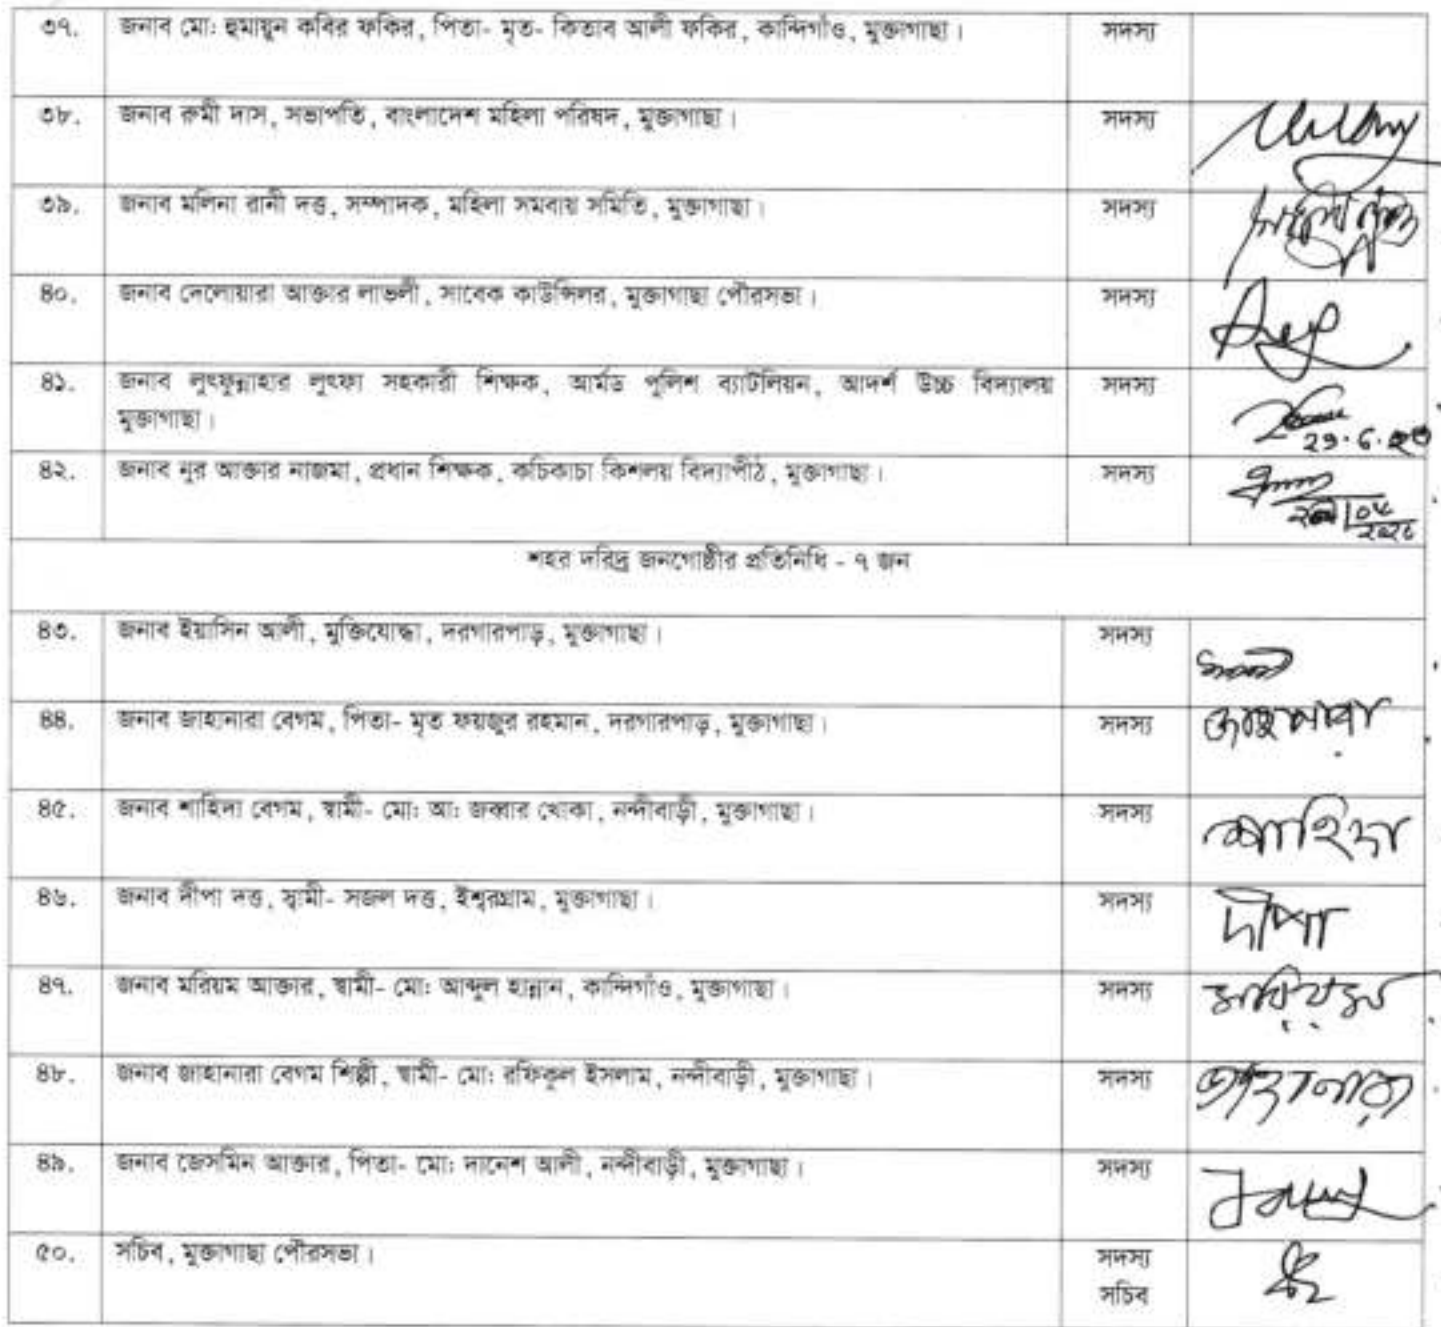 ৩৭. জনাব মো: হুমায়ুন কবির ফকির, পিতা- মৃত- কিতাব আলী ফকির, কান্দিগাঁও, মুক্তাগাছা। সদস্য
৩৮. জনাব রুমী দাস, সভাপতি, বাংলাদেশ মহিলা পরিষদ, মুক্তাগাছা। সদস্য
৩৯. জনাব মলিনা রানী দত্ত, সম্পাদক, মহিলা সমবায় সমিতি, মুক্তাগাছা। সদস্য
৪০. জনাব দেলোয়ারা আক্তার লাভলী, সাবেক কাউন্সিলর, মুক্তাগাছা পৌরসভা। সদস্য
৪১. জনাব লুৎফুন্নাহার লুৎফা সহকারী শিক্ষক, আর্মড পুলিশ ব্যাটলিয়ন, আদর্শ উচ্চ বিদ্যালয় সদস্য
মুক্তাগাছা।
৪২. জনাব নুর আক্তার নাজমা, প্রধান শিক্ষক, কচিকাচা কিশলয় বিদ্যাপীঠ, মুক্তাগাছা। সদস্য
শহর দরিদ্র জনগোষ্ঠীর প্রতিনিধি - ৭ জন
৪৩. জনাব ইয়াসিন আলী, মুক্তিযোদ্ধা, দরগারপাড়, মুক্তাগাছা। সদস্য
৪৪. জনাব জাহানারা বেগম, পিতা- মৃত ফয়জুর রহমান, দরগারপাড়, মুক্তাগাছা। সদস্য
৪৫. জনাব শাহিদা বেগম, স্বামী- মো: আ: জব্বার খোকা, নন্দীবাড়ী, মুক্তাগাছা। সদস্য শাহিদা
৪৬. জনাব দীপা দত্ত, স্বামী- সজল দত্ত, ঈশ্বরগ্রাম, মুক্তাগাছা। সদস্য দীপা
৪৭. জনাব মরিয়ম আক্তার, স্বামী- মো: আব্দুল হান্নান, কান্দিগাঁও, মুক্তাগাছা। সদস্য মরিয়ম
৪৮. জনাব জাহানারা বেগম শিল্পী, স্বামী- মো: রফিকুল ইসলাম, নন্দীবাড়ী, মুক্তাগাছা। সদস্য জাহানারা
৪৯. জনাব জেসমিন আক্তার, পিতা- মো: দানেশ আলী, নন্দীবাড়ী, মুক্তাগাছা। সদস্য
৫০. সচিব, মুক্তাগাছা পৌরসভা। সদস্য
সচিব